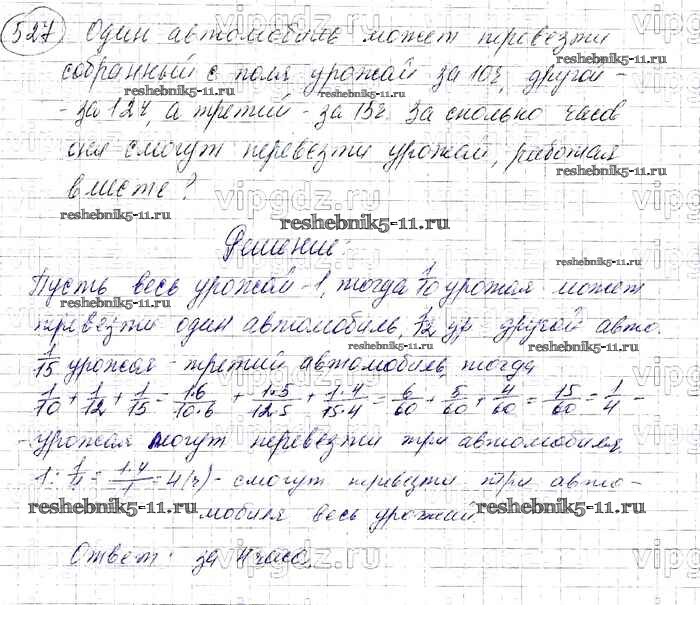 527 Один автомобиль может перевезти
собранный с поля урожай за 10ч, другой -
- за 12ч, а третий - за 15ч. За сколько часов
они смогут перевезти урожай, работая
вместе?
Решение:
Пусть весь урожай - 1, тогда 1/10 урожая может
перевезти один автомобиль, 1/12 ур другой авто.
1/15 урожая - третий автомобиль, тогда
1/10 + 1/12 + 1/15 = 1·6/10·6 + 1·5/12·5 + 1·4/15·4 = 6/60 + 5/60 + 4/60 = 15/60 = 1/4 -
- урожая могут перевезти три автомобиля.
1 : 1/4 = 1·4/1 = 4(ч) - смогут перевезти три авто-
мобиля весь урожай
Ответ: за 4 часа.
vipgdz.ru
reshebnik5-11.ru